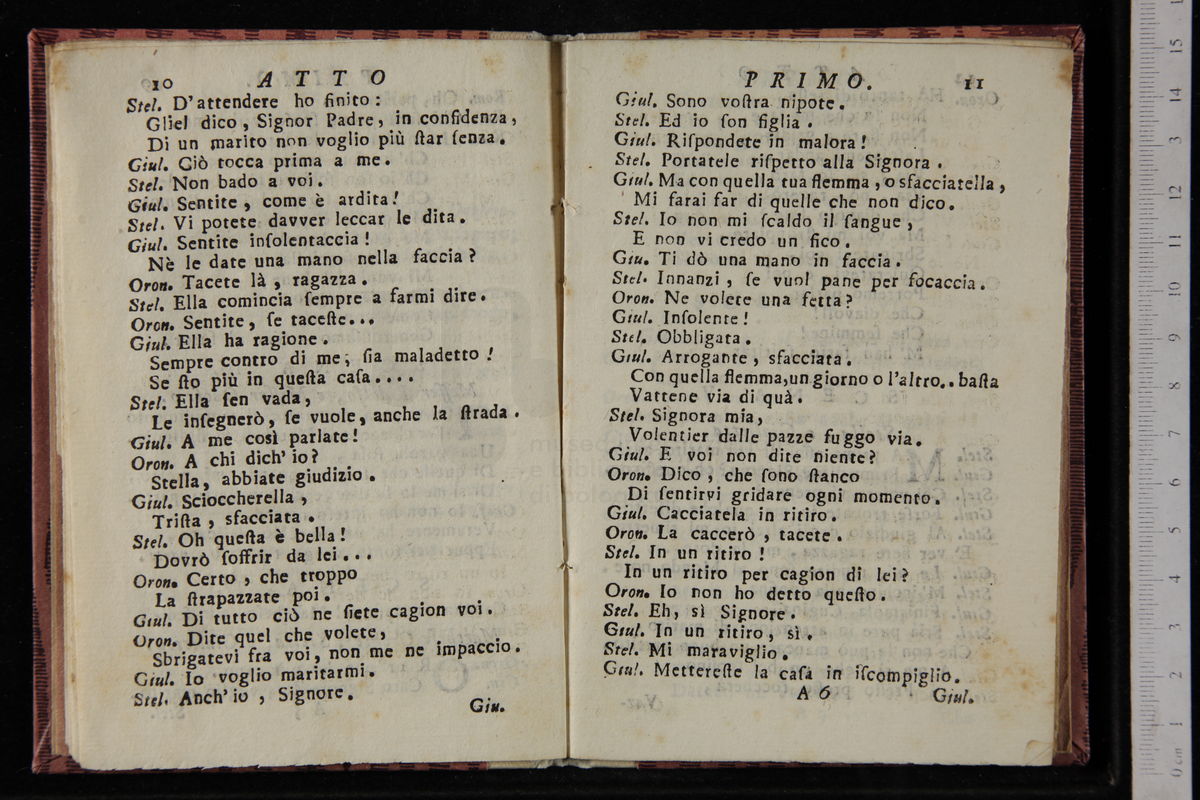 10 ATTO
Stel. D'attendere ho finito:
Gliel dico, Signor Padre, in confidenza,
Di un marito non voglio più ſtar ſenza.
Giul. Ciò tocca prima a me.
Stel. Non bado a voi.
Giul. Sentite, come è ardita!
Stel. Vi potete davver leccar le dita.
Giul. Sentite inſolentaccia!
Nè le date una mano nella faccia?
Oron. Tacete là, ragazza.
Stel. Ella comincia ſempre a farmi dire.
Oron. Sentite, ſe taceſte...
Giul. Ella ha ragione.
Sempre contro di me, ſia maladetto!
Se ſto più in queſta caſa....
Stel. Ella ſen vada,
Le inſegnerò, ſe vuole, anche la ſtrada.
Giul. A me così parlate!
Oron. A chi dich'io?
Stella, abbiate giudizio.
Giul. Scioccherella,
Triſta, sfacciata.
Stel. Oh queſta è bella!
Dovrò ſoffrir da lei...
Oron. Certo, che troppo
La ſtrapazzate poi.
Giul. Di tutto ciò ne ſiete cagion voi.
Oron. Dite quel che volete,
Sbrigatevi fra voi, non me ne impaccio.
Giul. Io voglio maritarmi.
Stel. Anch'io, Signore.
Giu.
PRIMO. 11
Giul. Sono voſtra nipote.
Stel. Ed io ſon figlia.
Giul. Riſpondete in malora!
Stel. Portatele riſpetto alla Signora.
Giul. Ma con quella tua flemma, o sfacciatella,
Mi farai far di quelle che non dico.
Stel. Io non mi ſcaldo il ſangue,
E non vi credo un fico.
Giu. Ti dò una mano in faccia.
Stel. Innanzi, ſe vuol pane per focaccia.
Oron. Ne volete una fetta?
Giul. Inſolente!
Stel. Obbligata.
Giul. Arrogante, sfacciata.
Con quella flemma, un giorno o l'altro.. baſta
Vattene via di quà.
Stel. Signora mia,
Volentier dalle pazze fuggo via.
Giul. E voi non dite niente?
Oron. Dico, che ſono ſtanco
Di ſentirvi gridare ogni momento.
Giul. Cacciatela in ritiro.
Oron. La caccerò, tacete.
Stel. In un ritiro!
In un ritiro per cagion di lei?
Oron. Io non ho detto queſto.
Stel. Eh, sì Signore.
Giul. In un ritiro, sì.
Stel. Mi maraviglio.
Giul. Mettereſte la caſa in iſcompiglio.
A 6 Giul.